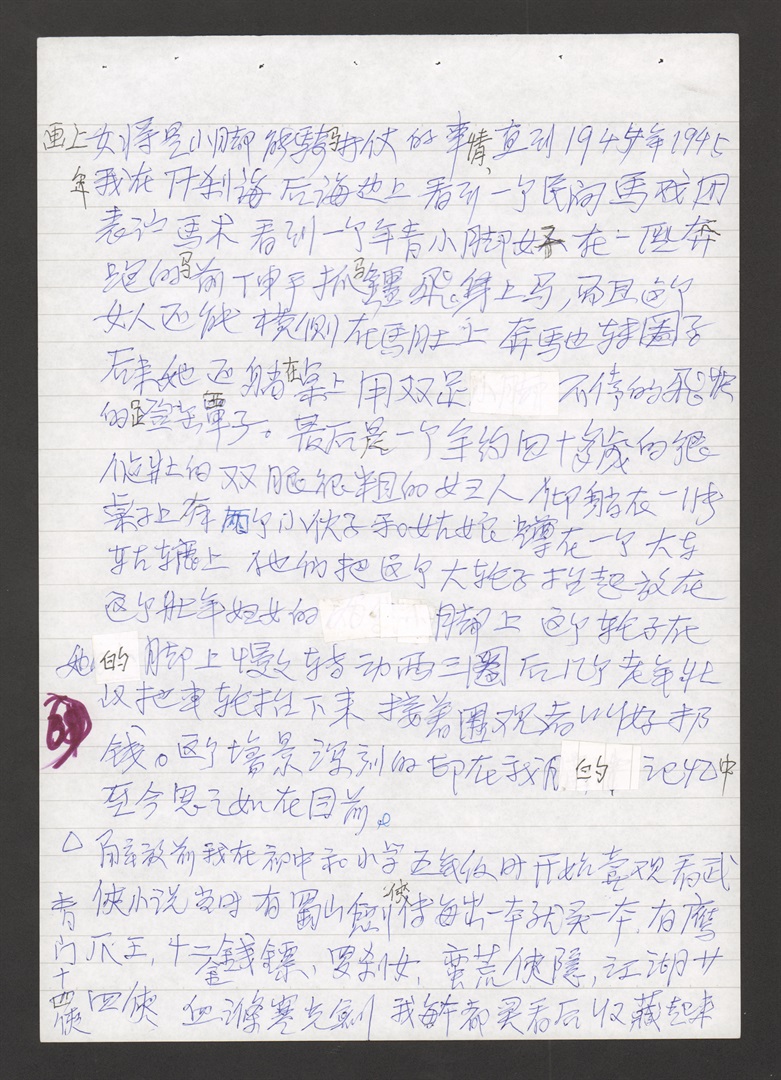 画上女将是小脚能騎马打仗的事情、直到1944年1945
年我在什刹海后海边上看到一个民间馬戏团
表演馬术看到一个年青小脚女子在一匹奔
跑的马前伸手抓马疆飛身上马,而且这个
女人还能横侧在馬肚上奔馳转圈子
后来她还躺在桌上用双足 不停的飛快
的蹬坛子。最后是一个年约四十多歲的很
健壮的双腿很粗的妇人仰躺在一张
桌子上有两个小伙子和小姑娘蹲在一个大车
轱辘上他们把这个大轮子抬起放在
这个壮年妇女的 脚上这个轮子在
她的脚上慢慢转动两三圈后几个老年壮
汉把車轮抬下来接着圍观者叫好扔
钱。这个場景深刻的印在我的记忆中
至今思之如在目前。
69
△解放前我在初中和小学五年级时开始喜观看武
侠小说当时有蜀山劍侠传每出一本就买一本,有鹰
爪王,十二金錢镖、罗刹女,蛮荒侠隱,江湖廿
四侠 血滌寒光劍 我每本都买看后收藏起来
青门十四侠